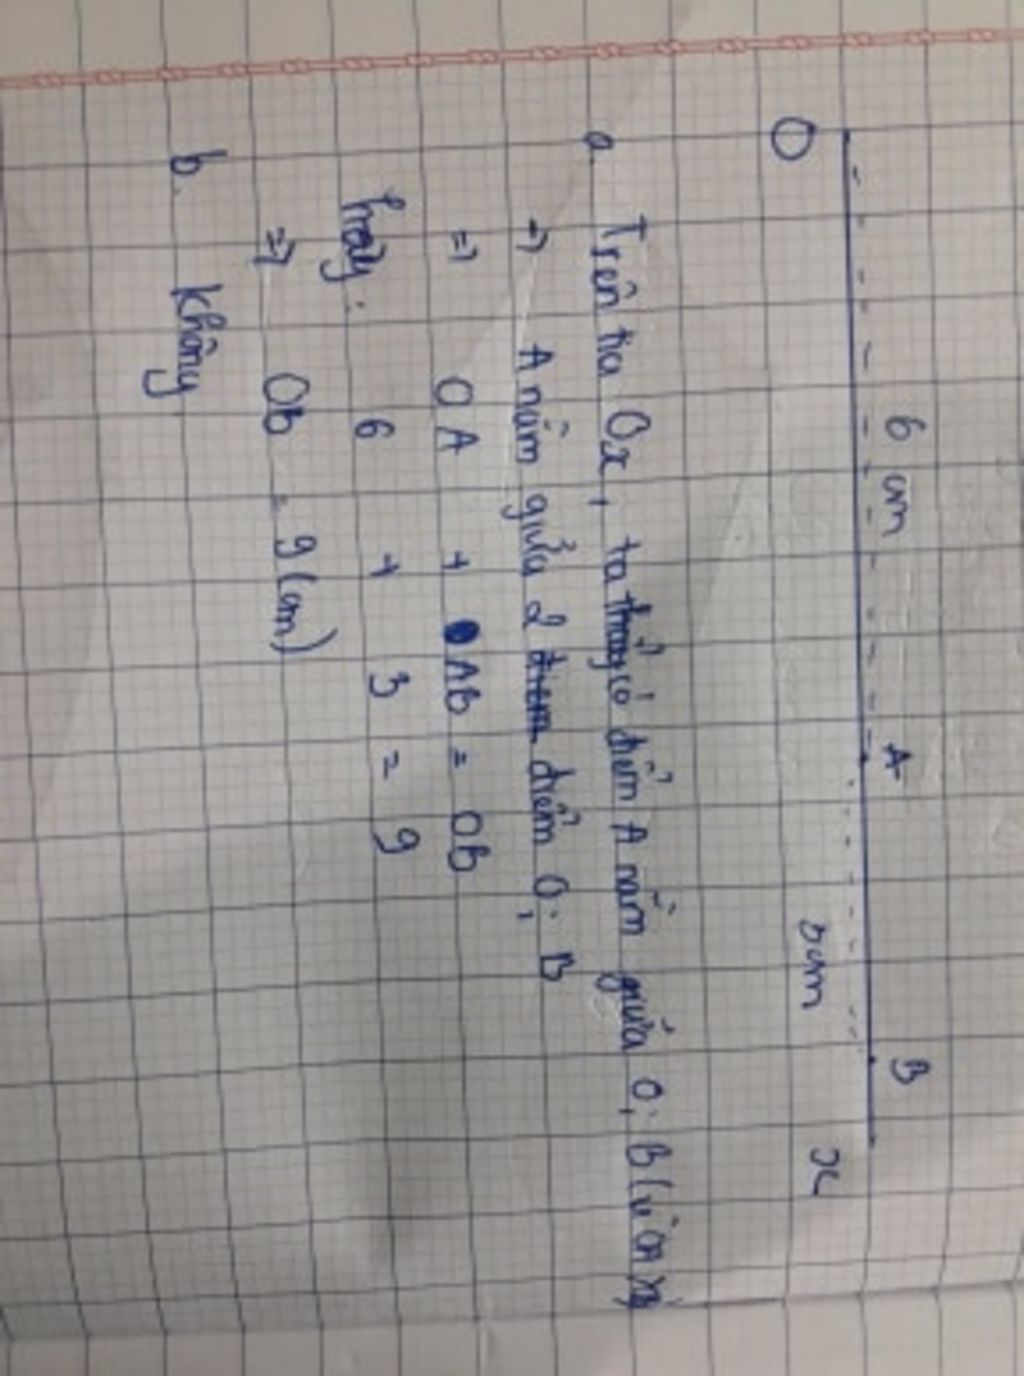 6 cm A B
O 3cm x
a. Trên tia Ox, ta thấy có điểm A nằm giữa O; B (
→ A nằm giữa 2 điểm O; B
=> OA + AB = OB
hay: 6 + 3 = 9
=> Ob = 9 (cm)
b. không